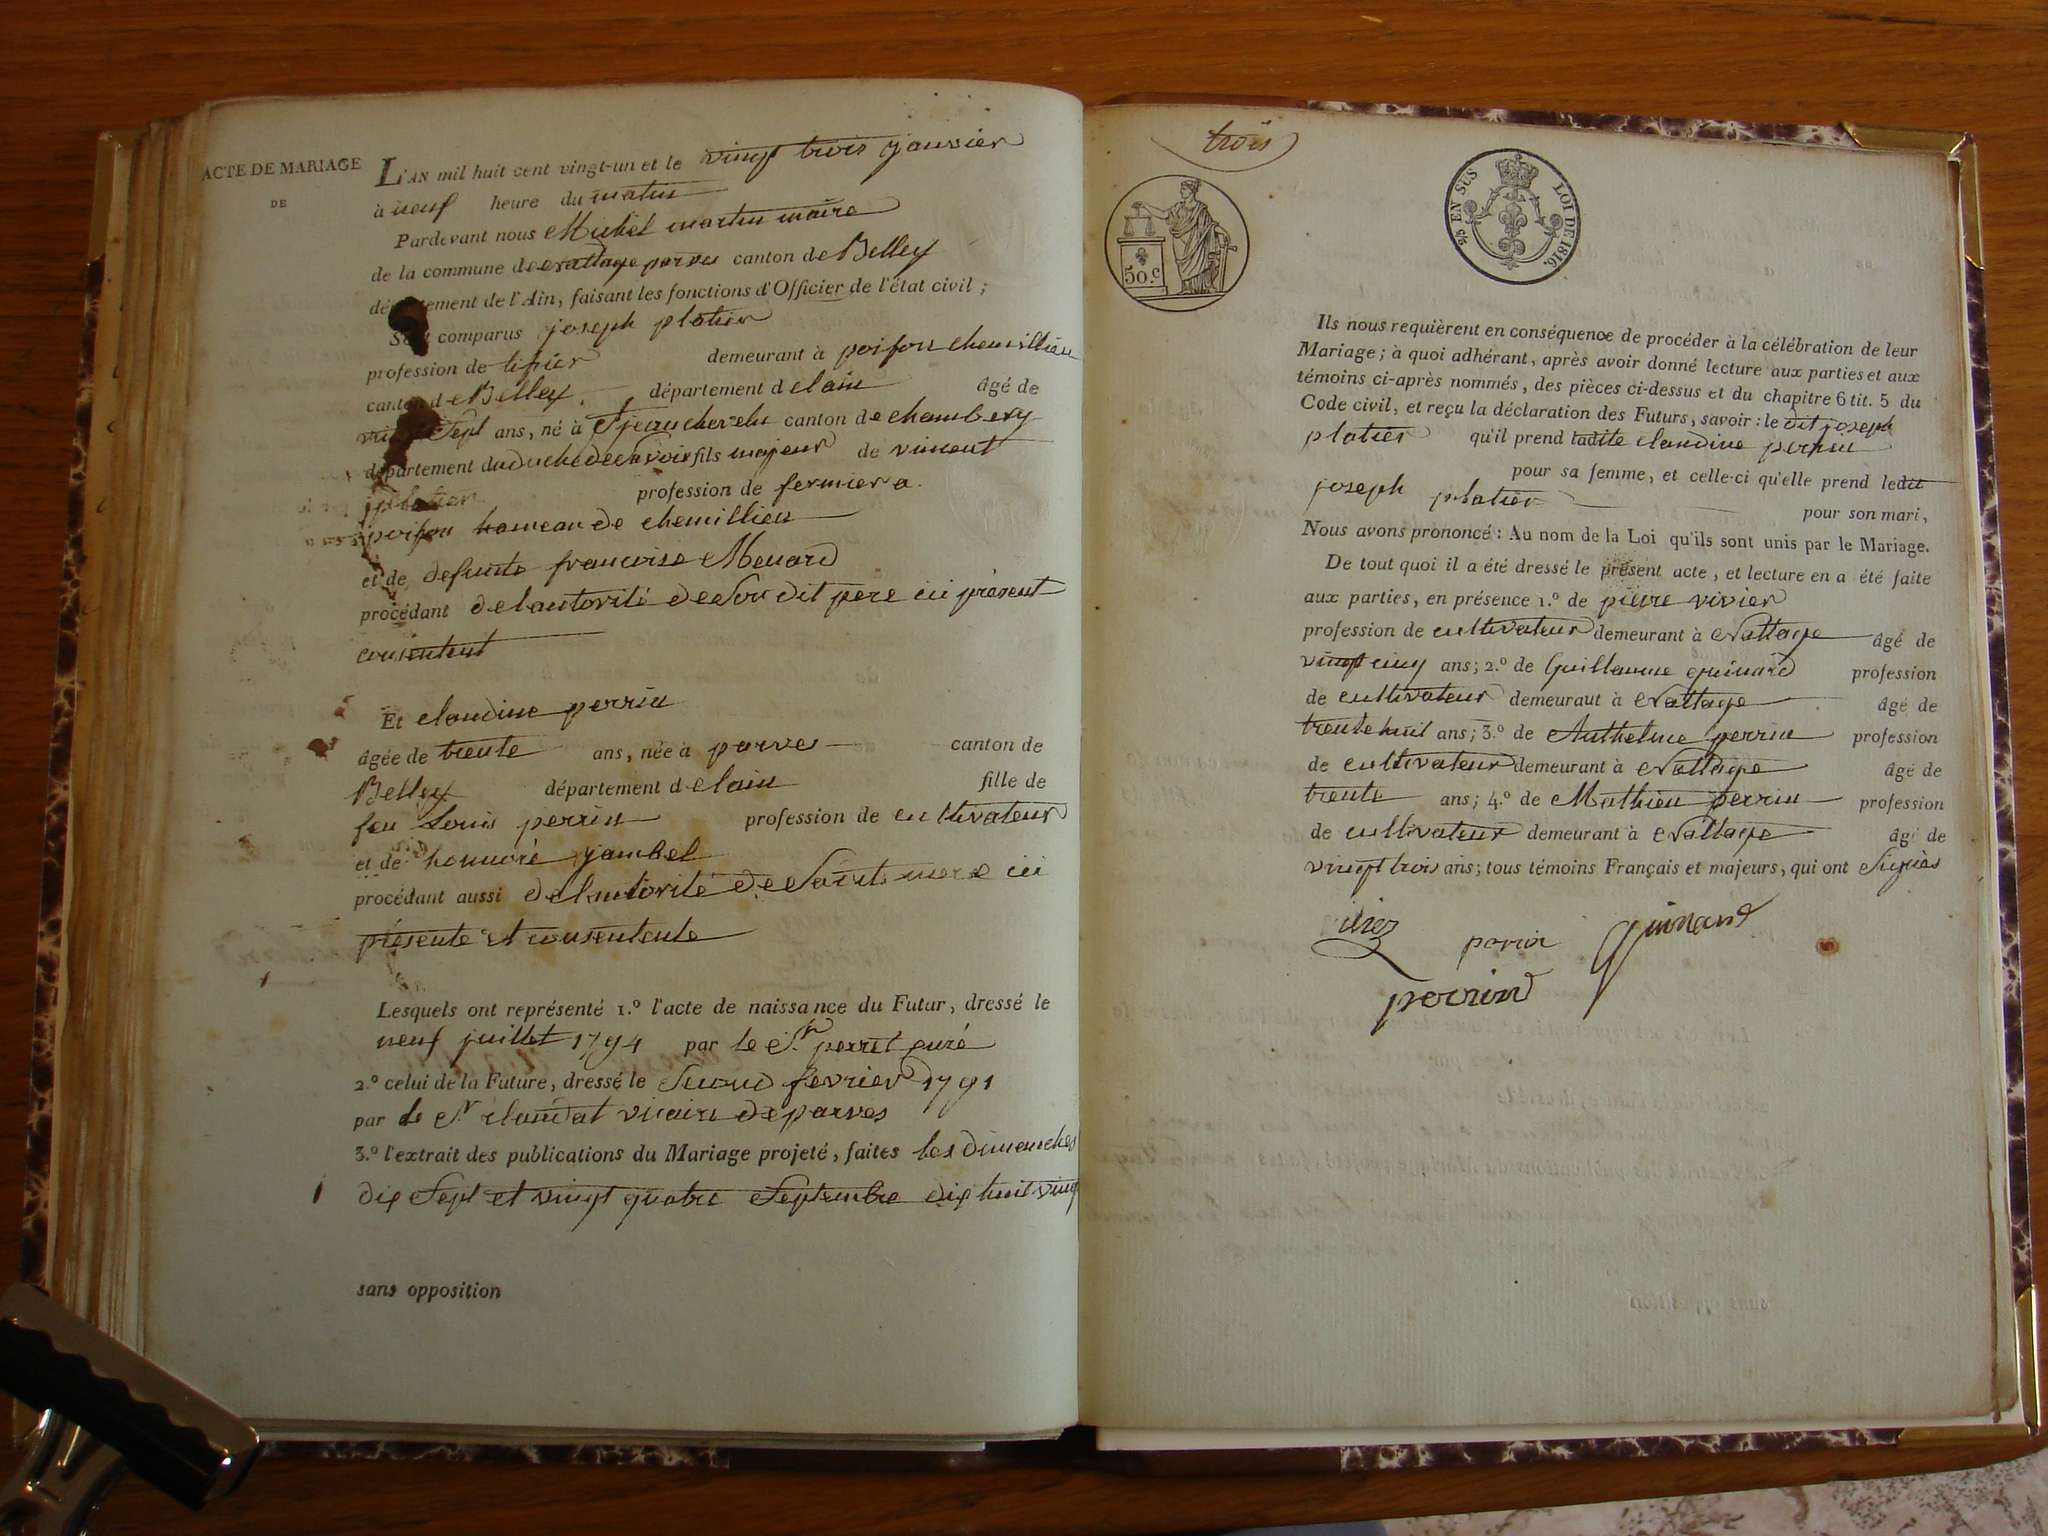 ACTE DE MARIAGE
DE
L'AN mil huit cent vingt-un et le vingt trois janvier
à neuf heure du matin
Pardevant nous Michel martin maire
de la commune de nattage parves canton de Belley
département de l'Ain, faisant les fonctions d'Officier de l'état civil ;
Sont comparus joseph platier
profession de demeurant à poifou chemillieu
canton de Belley département d elain âgé de
vingt Sept ans, né à canton de chambery
département du duché de Savoie fils majeur de vincent
platier profession de fermier a
poifou hameau de chemillieu
et de defunte francoise Menard
procédant delautorité de Son dit pere ici présent
consentent
Et claudine perrin
âgée de trente ans, née à parves canton de
Belley département d elain fille de
feu Louis perrin profession de cultivateur
et de honnoré jambel
procédant aussi delautorité de Saditte mere ici
présente et consentente
Lesquels ont représenté 1.º l'acte de naissance du Futur, dressé le
neuf juillet 1794 par le Sr perret curé
2.º celui de la Future, dressé le Second fevrier 1791
par le Sr vicaire de parves
3.º l'extrait des publications du Mariage projeté, faites les dimenches
dix Sept et vingt quatre Septembre dix huit vingt
sans opposition
trois
50.c
EN SUS LOI DE 1816.
Ils nous requièrent en conséquence de procéder à la célébration de leur
Mariage ; à quoi adhérant, après avoir donné lecture aux parties et aux
témoins ci-après nommés, des pièces ci-dessus et du chapitre 6 tit. 5 du
Code civil, et reçu la déclaration des Futurs, savoir : le dit joseph
platier qu'il prend ladite claudine perrin
pour sa femme, et celle-ci qu'elle prend ledit
joseph platier pour son mari,
Nous avons prononcé : Au nom de la Loi qu'ils sont unis par le Mariage.
De tout quoi il a été dressé le présent acte, et lecture en a été faite
aux parties, en présence 1.º de pierre vivier
profession de cultivateur demeurant à Nattage âgé de
vingt cinq ans ; 2.º de Guillaume guinard profession
de cultivateur demeurant à Nattage âgé de
trente huit ans ; 3.º de Anthelme perrin profession
de cultivateur demeurant à Nattage âgé de
trente ans ; 4.º de Mathieu perrin profession
de cultivateur demeurant à Nattage âgé de
vingt trois ans ; tous témoins Français et majeurs, qui ont Signés
perrin Guinard
perrin